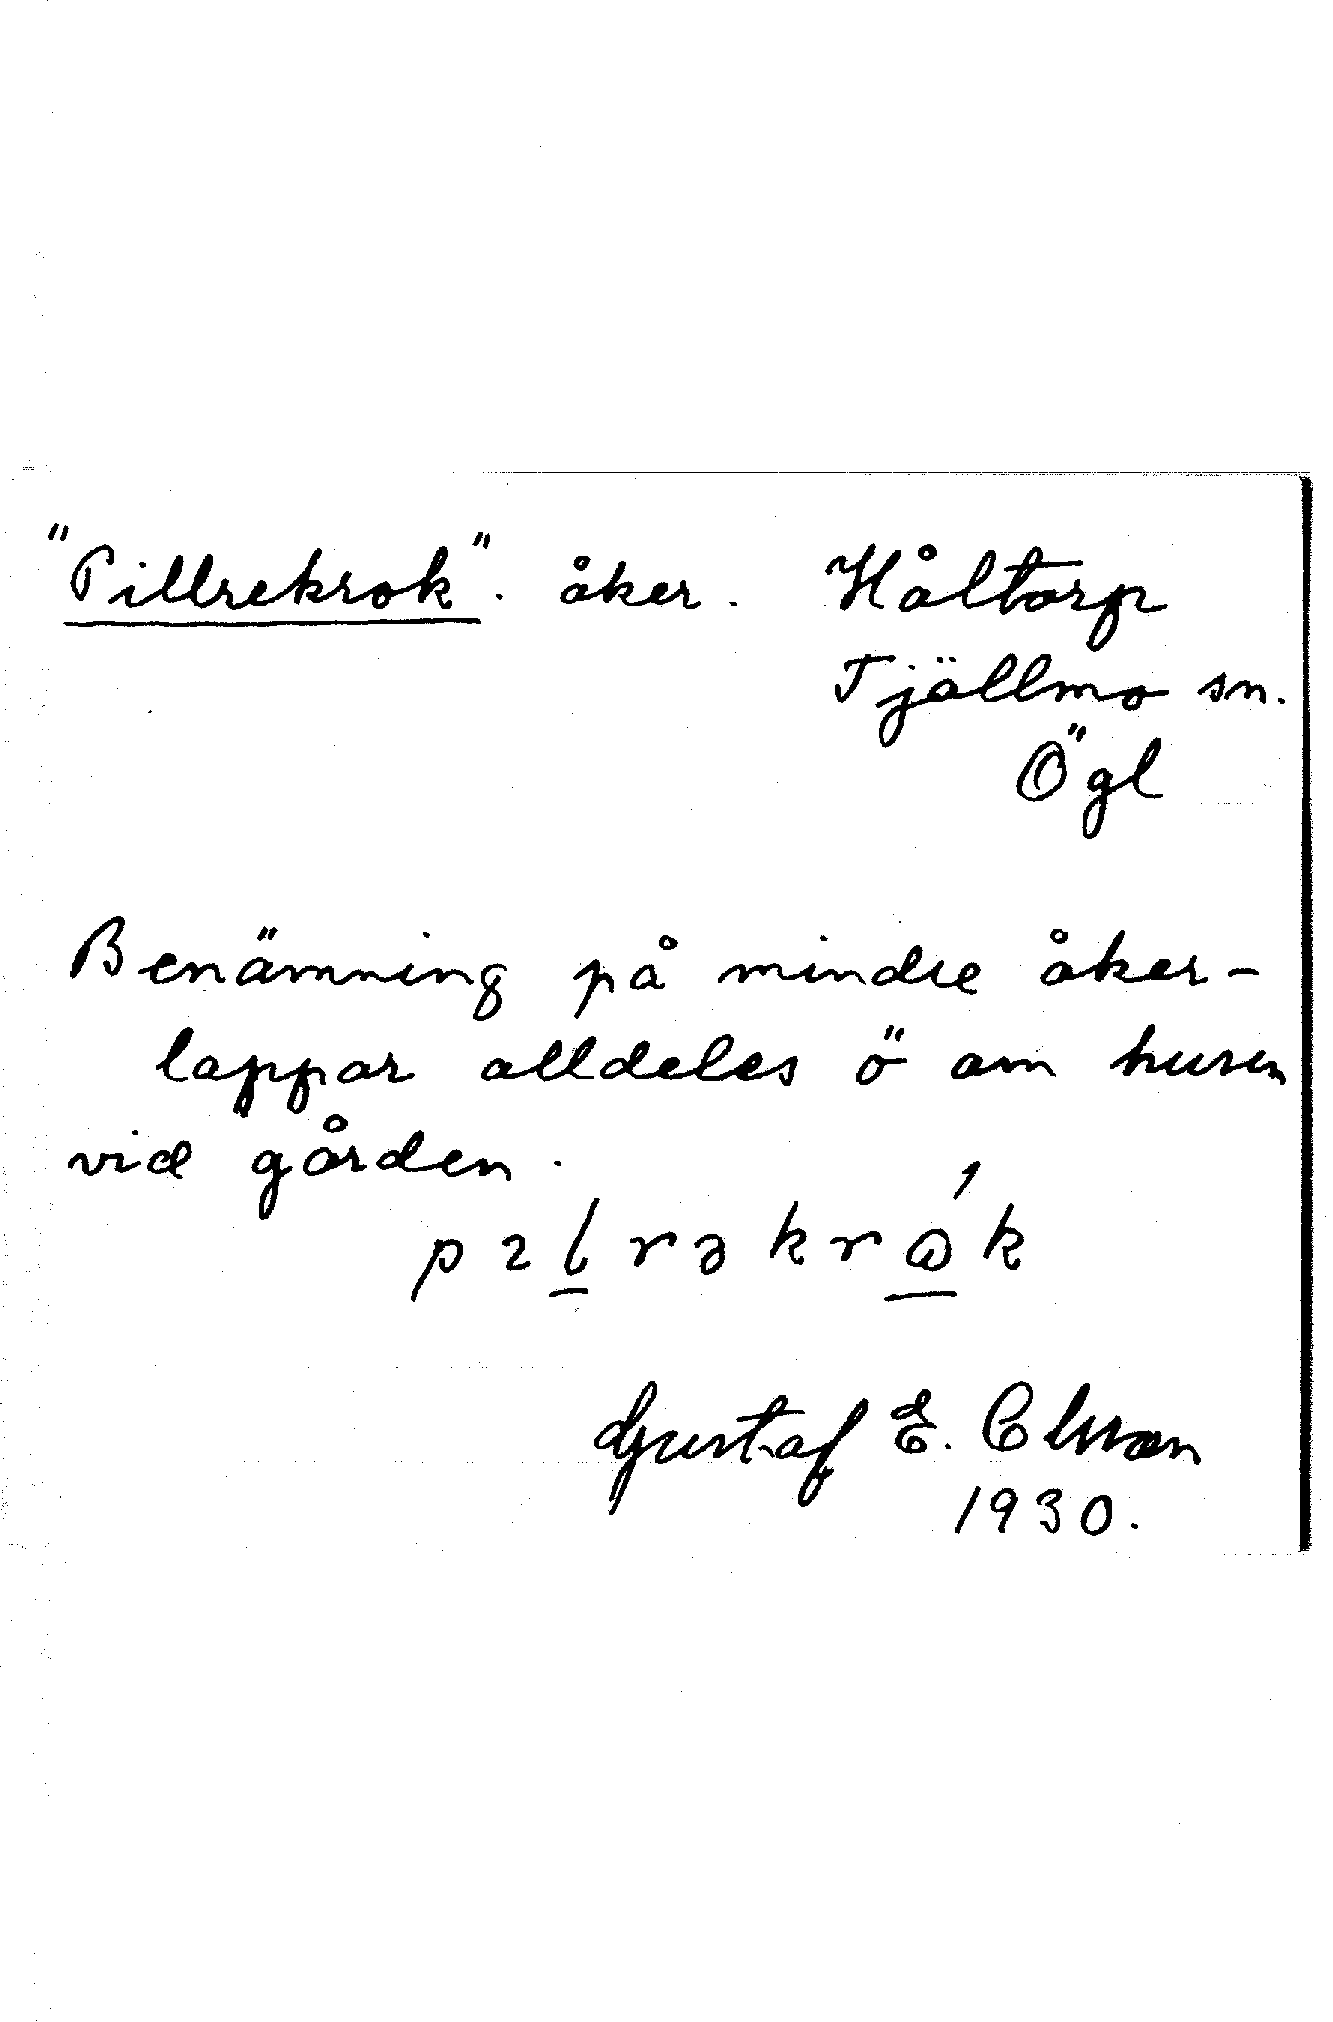 "Pillrekrok". åker. Håltorp
Tjällmo sn.
Ögl
Benämning på mindre åker-
lappar alldeles ö om husen
vid gården.
pılrəkrω´k
Gustaf E. Olsson
1930.